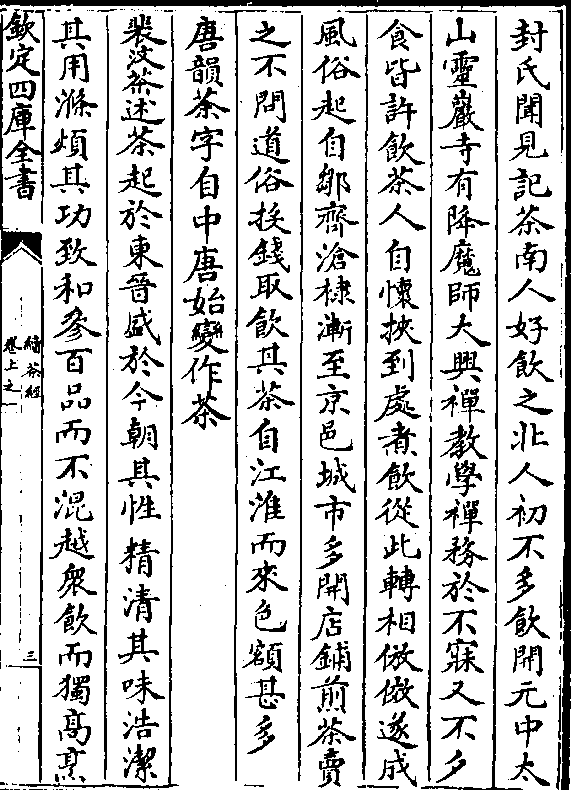 封氏聞見記茶南人好飲之北人初不多飲開元中太
山靈巖寺有降魔師大興禪教學禪務於不寐又不夕
食皆許飲茶人自懷挾到處煮飲從此轉相倣傚遂成
風俗起自鄒齊滄棣漸至京邑城市多開店鋪煎茶賣
之不問道俗投錢取飲其茶自江淮而來色額甚多
唐韻荼字自中唐始變作茶
裴汶茶述茶起於東晉盛於今朝其性精清其味浩潔
其用滌煩其功致和參百品而不混越衆飲而獨高烹
欽定四庫全書
續茶經
卷上之一
三